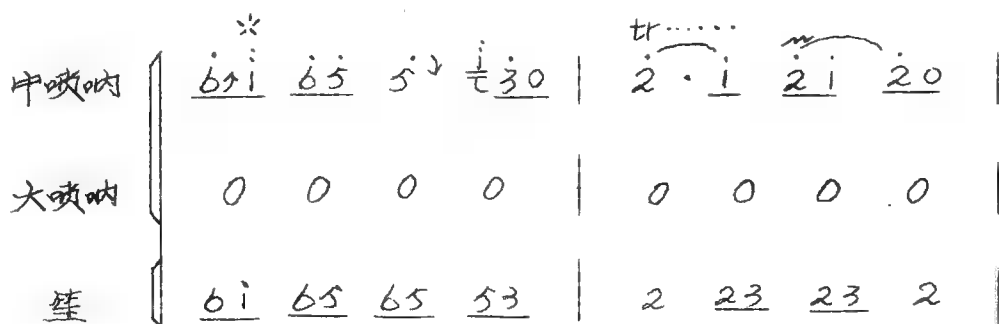 tr ······
中唢呐 6̇↗i̇̇ 6̇5̇ 5̇↘ i̇ 3̇0 | 2̇ · i̇ 2̇i̇ 2̇0 |
大唢呐 0 0 0 0 | 0 0 0 0 |
笙 6i̇ 65 65 53 | 2 23 23 2 |